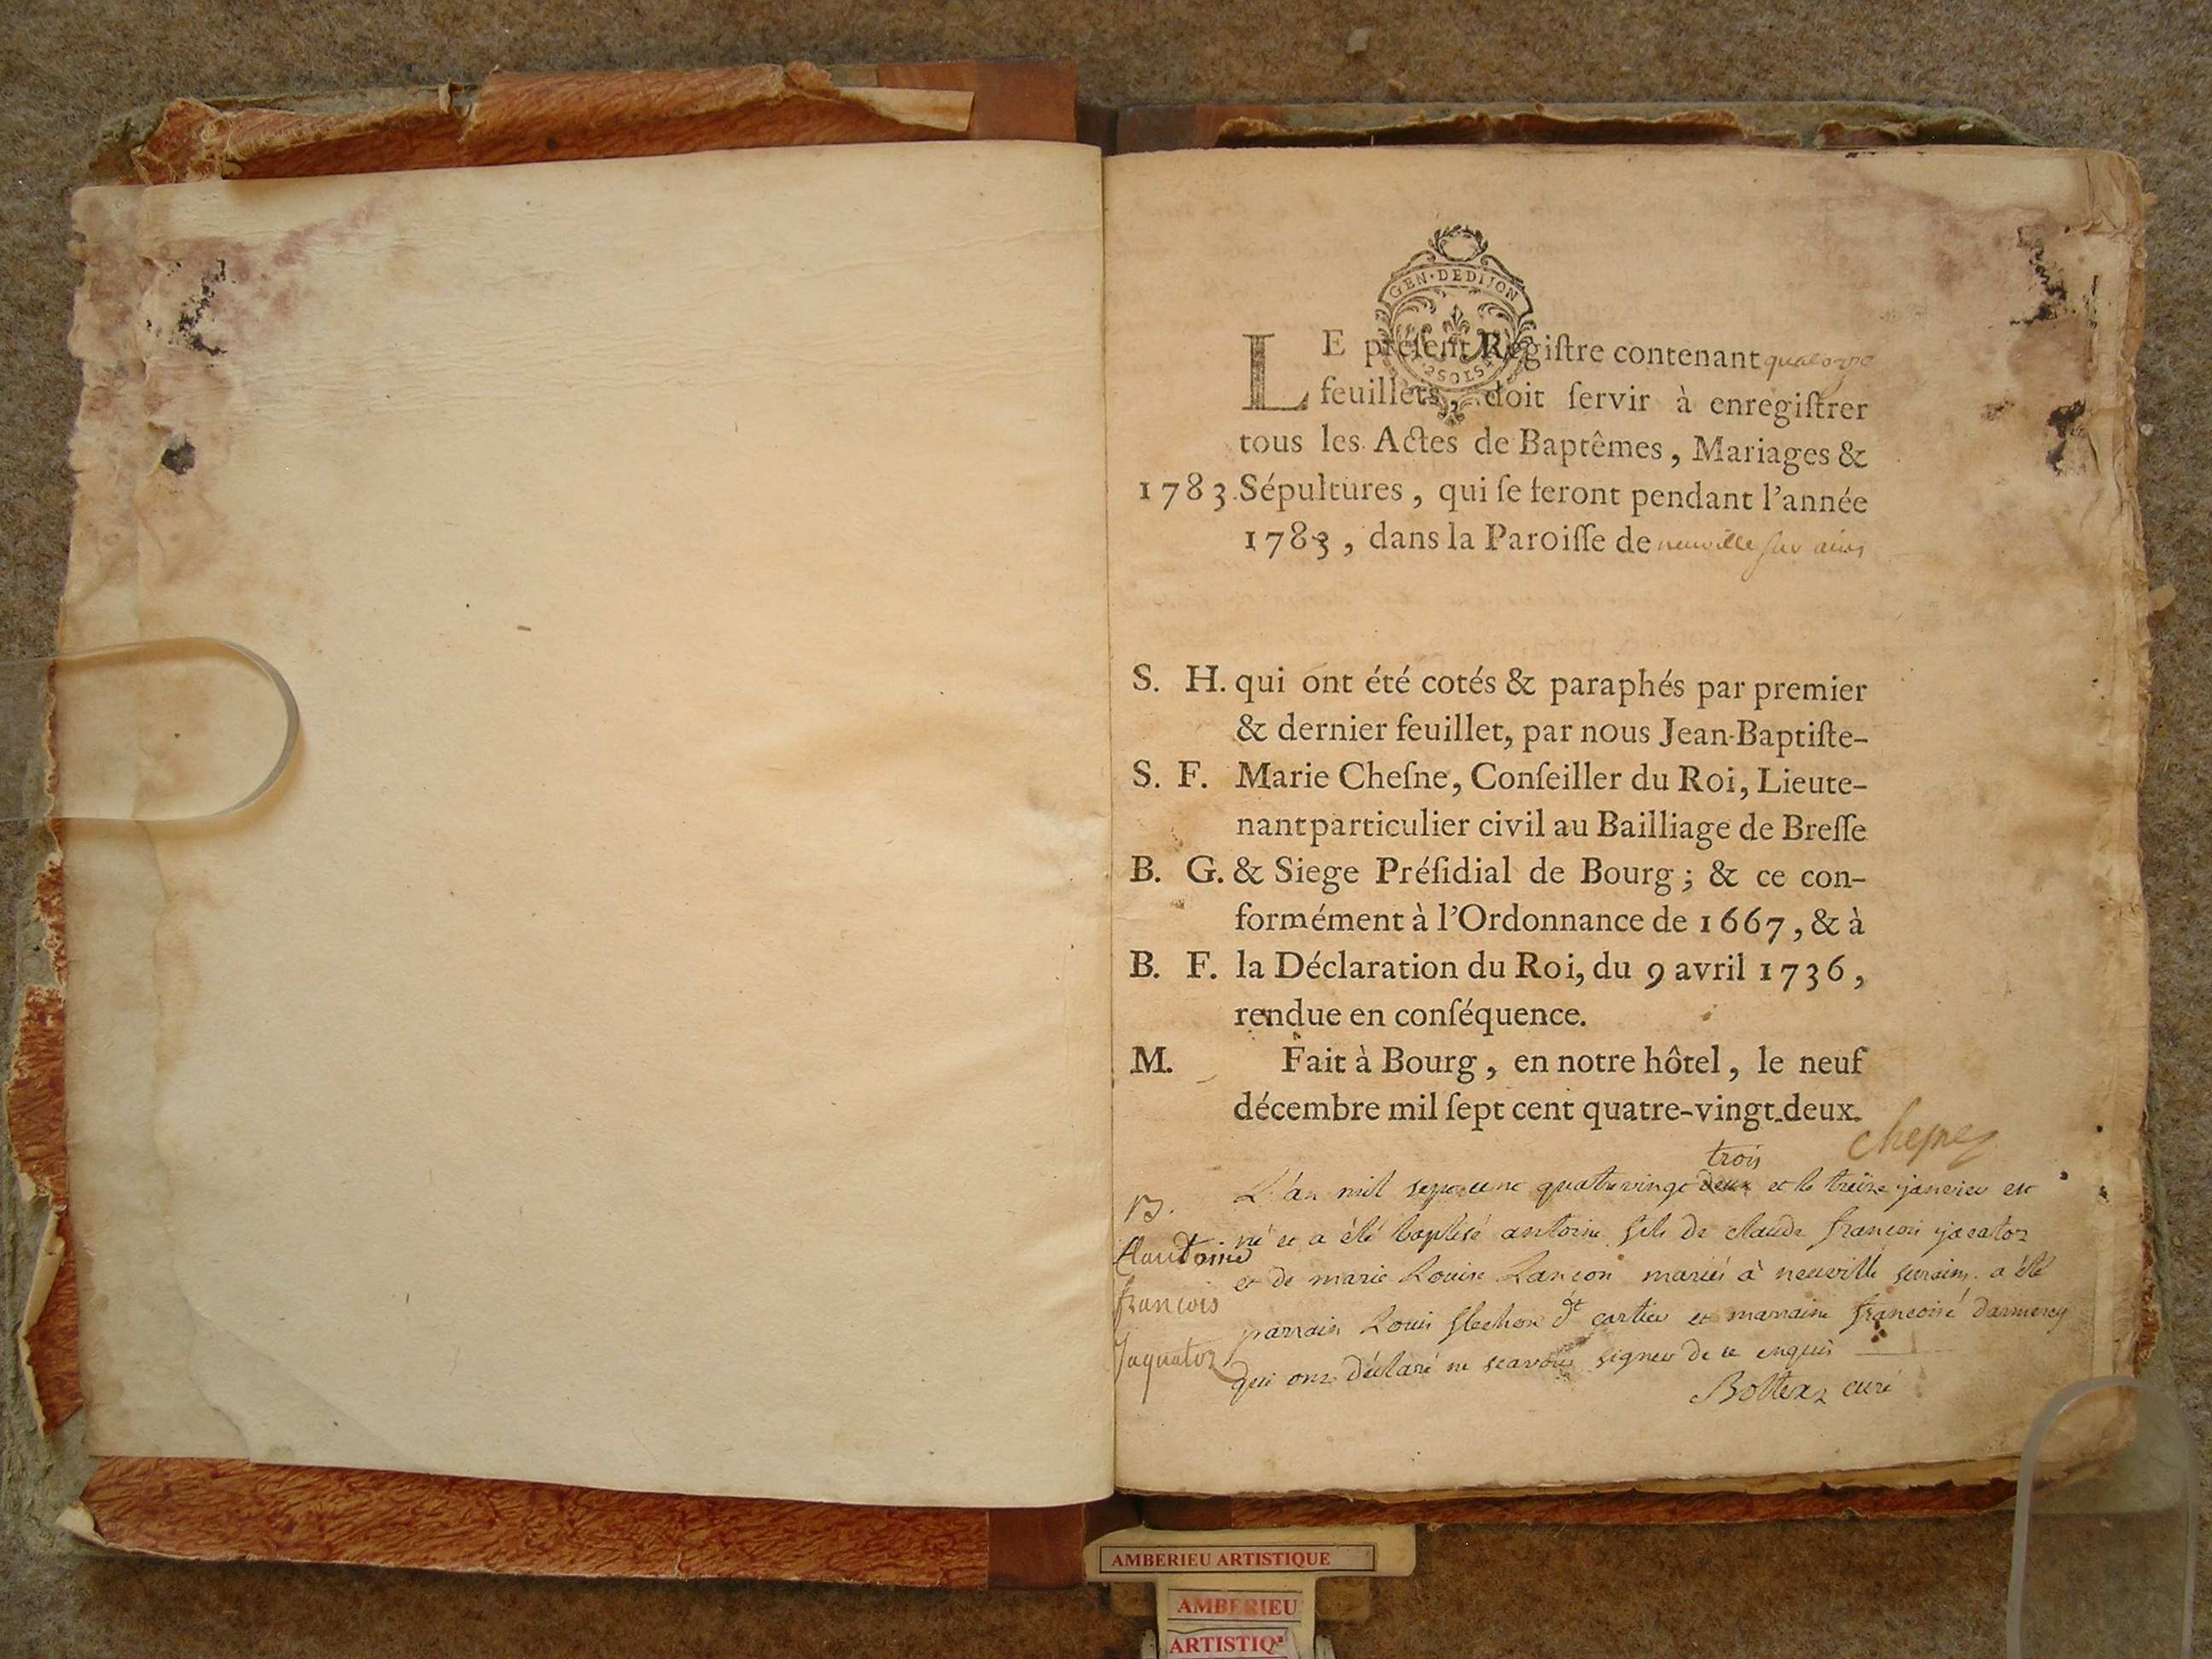 GEN·DEDIJON
LE préſent Regiſtre contenant quatorze
feuillets, doit ſervir à enregiſtrer
tous les Actes de Baptêmes, Mariages &
1783. Sépultures, qui ſe feront pendant l'année
1783, dans la Paroiſſe de neuville sur ains
S. H. qui ont été cotés & paraphés par premier
& dernier feuillet, par nous Jean-Baptiſte-
S. F. Marie Cheſne, Conſeiller du Roi, Lieute-
nant particulier civil au Bailliage de Breſſe
B. G. & Siege Préſidial de Bourg; & ce con-
formément à l'Ordonnance de 1667, & à
B. F. la Déclaration du Roi, du 9 avril 1736,
rendue en conſéquence.
M. Fait à Bourg, en notre hôtel, le neuf
décembre mil ſept cent quatre-vingt-deux.
chesne
trois
B. L'an mil sept cent quatre vingt deux et le treize janvier est
né et a été baptisé antoine fils de claude françois jacatoz
françois et de marie Louise Lançon mariés à neuville surains a été
parrain Louis dt cartier et marraine françoise
Jaquatoz qui ont déclaré ne scavoir signer de ce enquis
Bottex curé
AMBERIEU ARTISTIQUE
AMBERIEU
ARTISTIQ